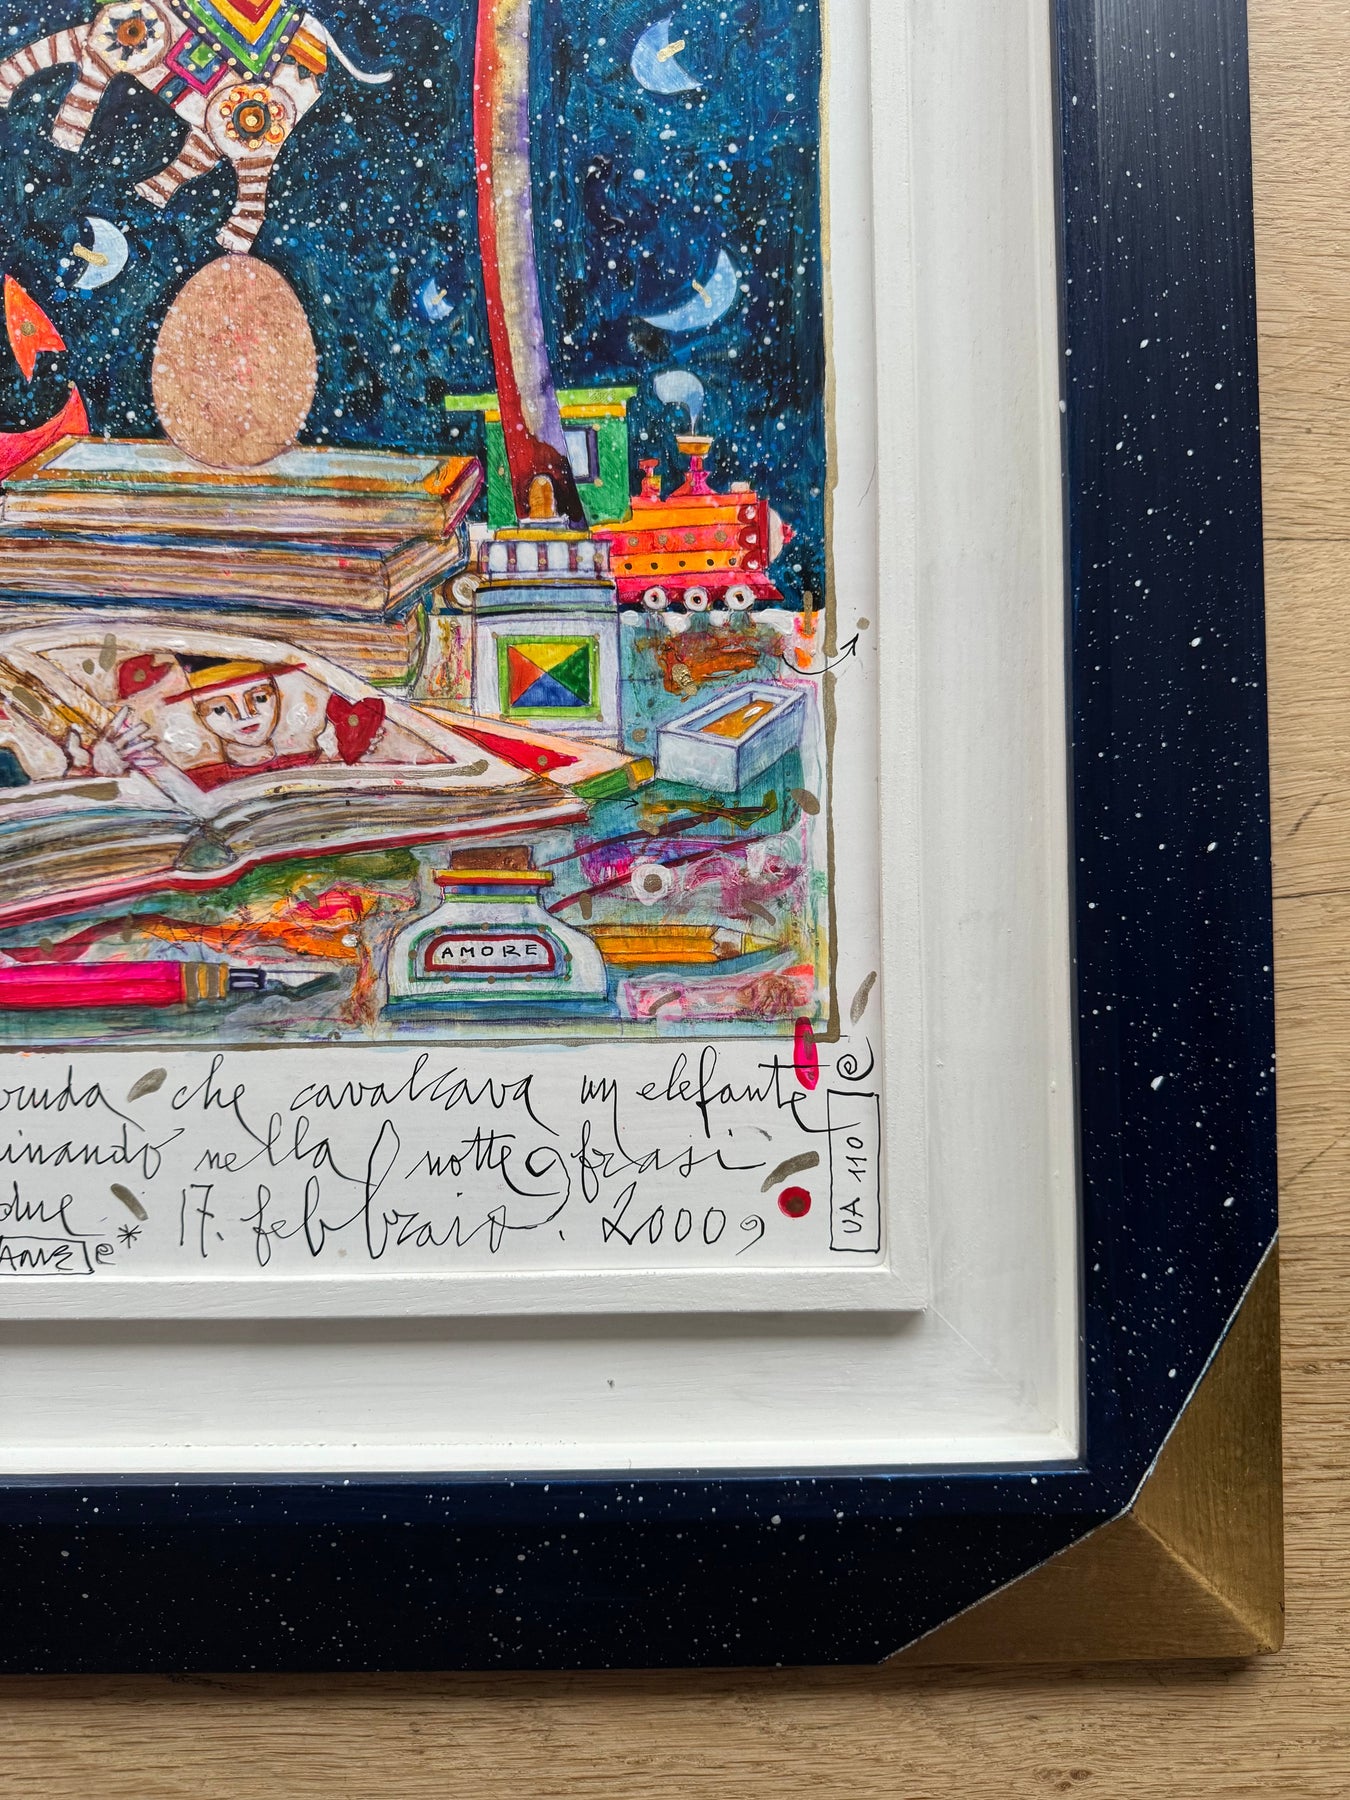 AMORE
che cavalcava un elefante
nella notte frasi
due 17. febbraio. 2000
UA 110